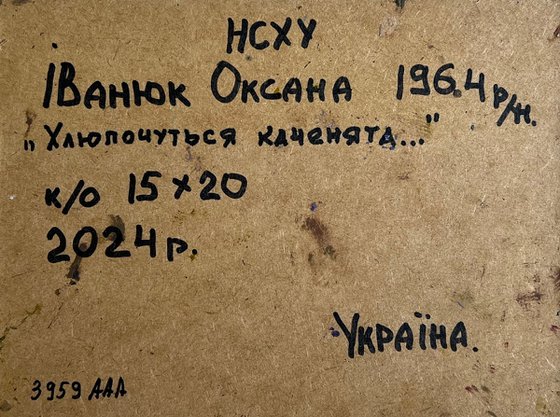 НСХУ
Іванюк Оксана 1964 р/н.
„Хлюпочуться каченята..."
к/о 15×20
2024р.
Україна.
3959 ААА